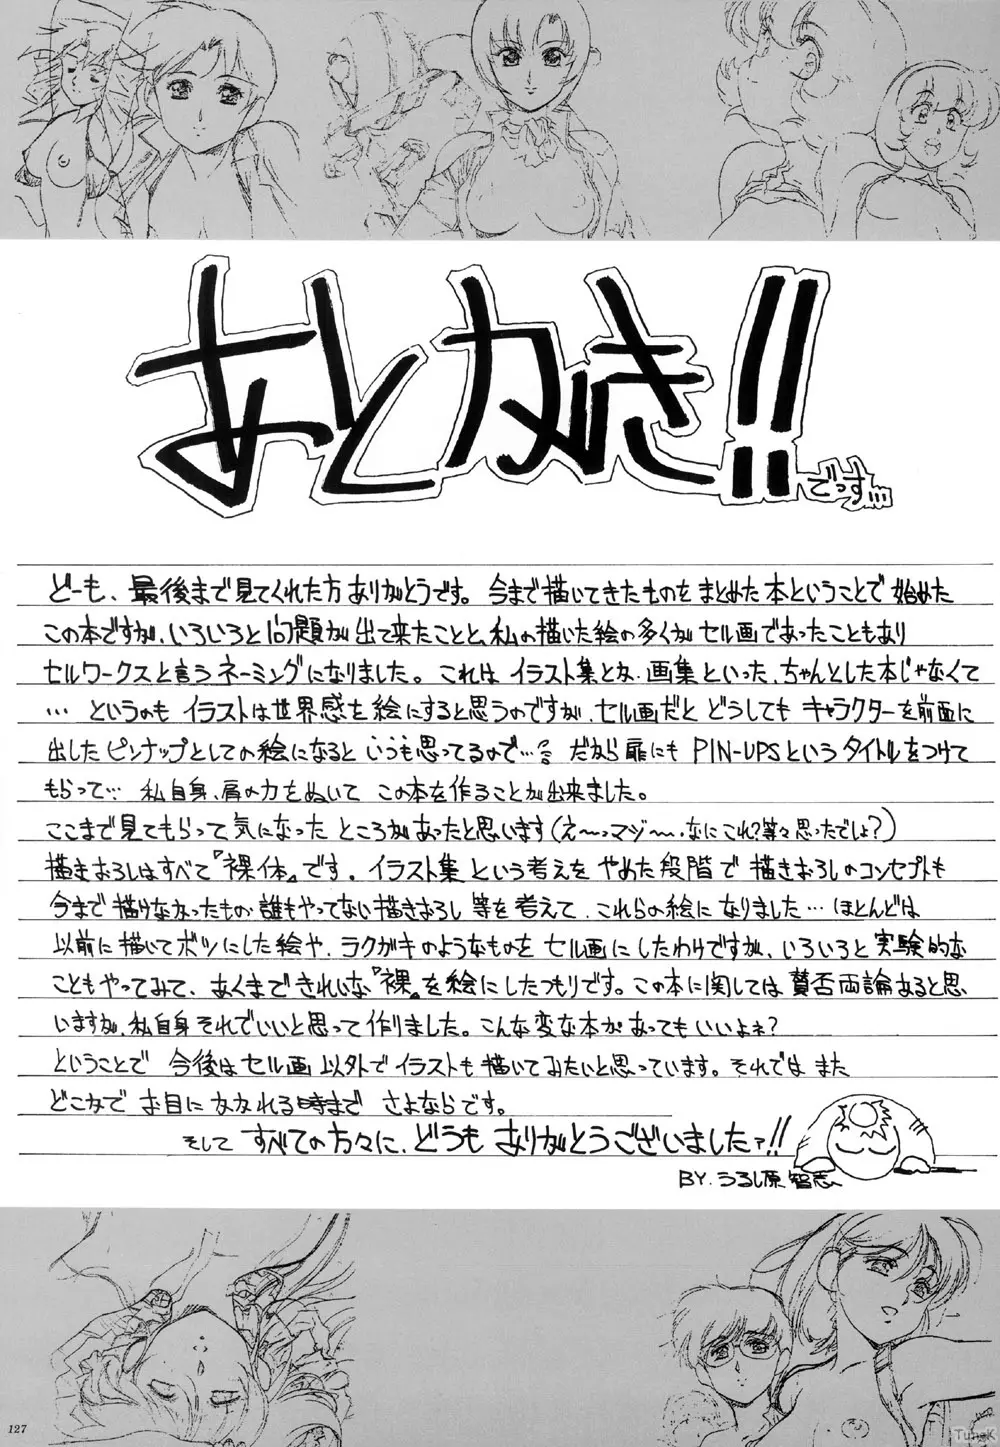 あとがき!!
でっす…
どーも、最後まで見てくれた方ありがとうです。今まで描いてきたものをまとめた本ということで始めた
この本ですが、いろいろと問題が出て来たことと、私の描いた絵の多くがセル画であったこともあり
セルワークスと言うネーミングになりました。これはイラスト集とか、画集といった、ちゃんとした本じゃなくて
…というのもイラストは世界感を絵にすると思うのですが、セル画だとどうしてもキャラクターを前面に
出したピンナップとしての絵になるといつも思ってるので…。だから扉にもPIN-UPSというタイトルをつけて
もらって…私自身、肩の力をぬいてこの本を作ることが出来ました。
ここまで見てもらって気になったところがあったと思います(え〜っマジ〜、なにこれ?等々思ったでしょ?)
描きおろしはすべて『裸体』です。イラスト集という考えをやめた段階で描きおろしのコンセプトも
今まで描けなかったもの、誰もやってない描きおろし等を考えて、これらの絵になりました…ほとんどは
以前に描いてボツにした絵や、ラクガキのようなものをセル画にしたわけですが、いろいろと実験的な
こともやってみて、あくまできれいな『裸』を絵にしたつもりです。この本に関しては賛否両論あると思
いますが、私自身それでいいと思って作りました。こんな変な本があってもいいよネ?
ということで今後はセル画以外でイラストも描いてみたいと思っています。それではまた
どこかでお目にかかれる時までさよならです。
そしてすべての方々に、どうもありがとうございましたァ!!
BY.うるし原智志
127
TuneK